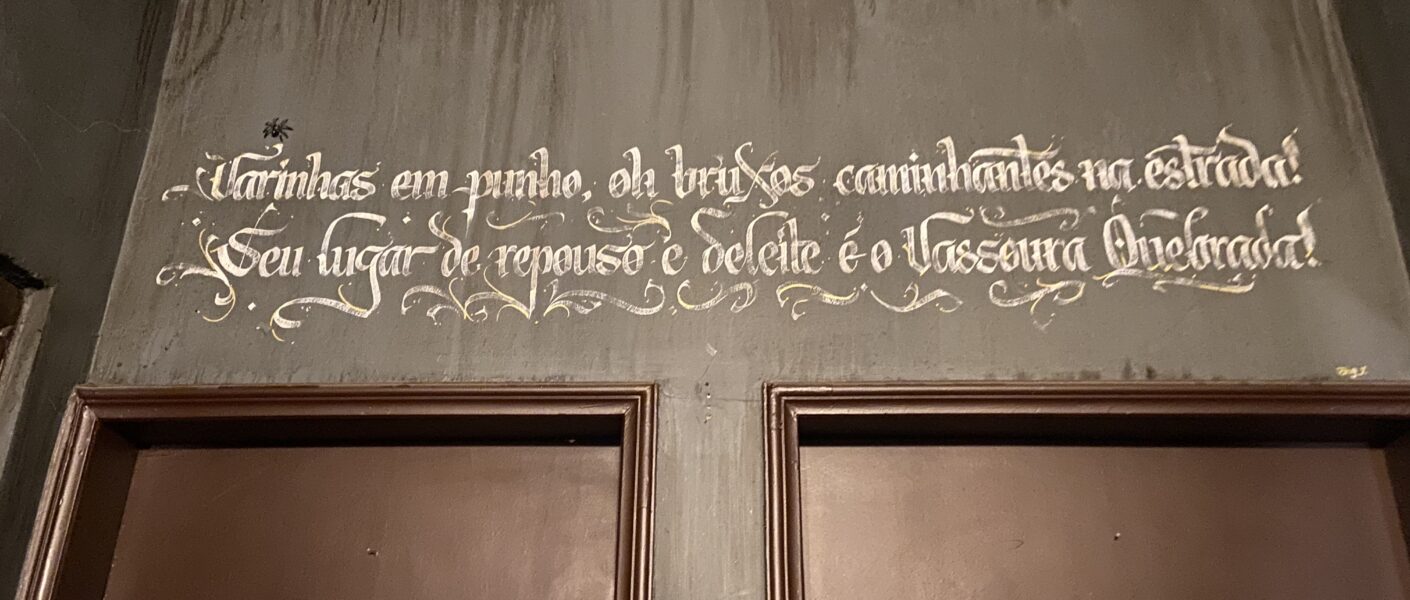 Varinhas em punho, oh bruxos caminhantes na estrada!
Seu lugar de repouso e deleite é o Vassoura Quebrada!